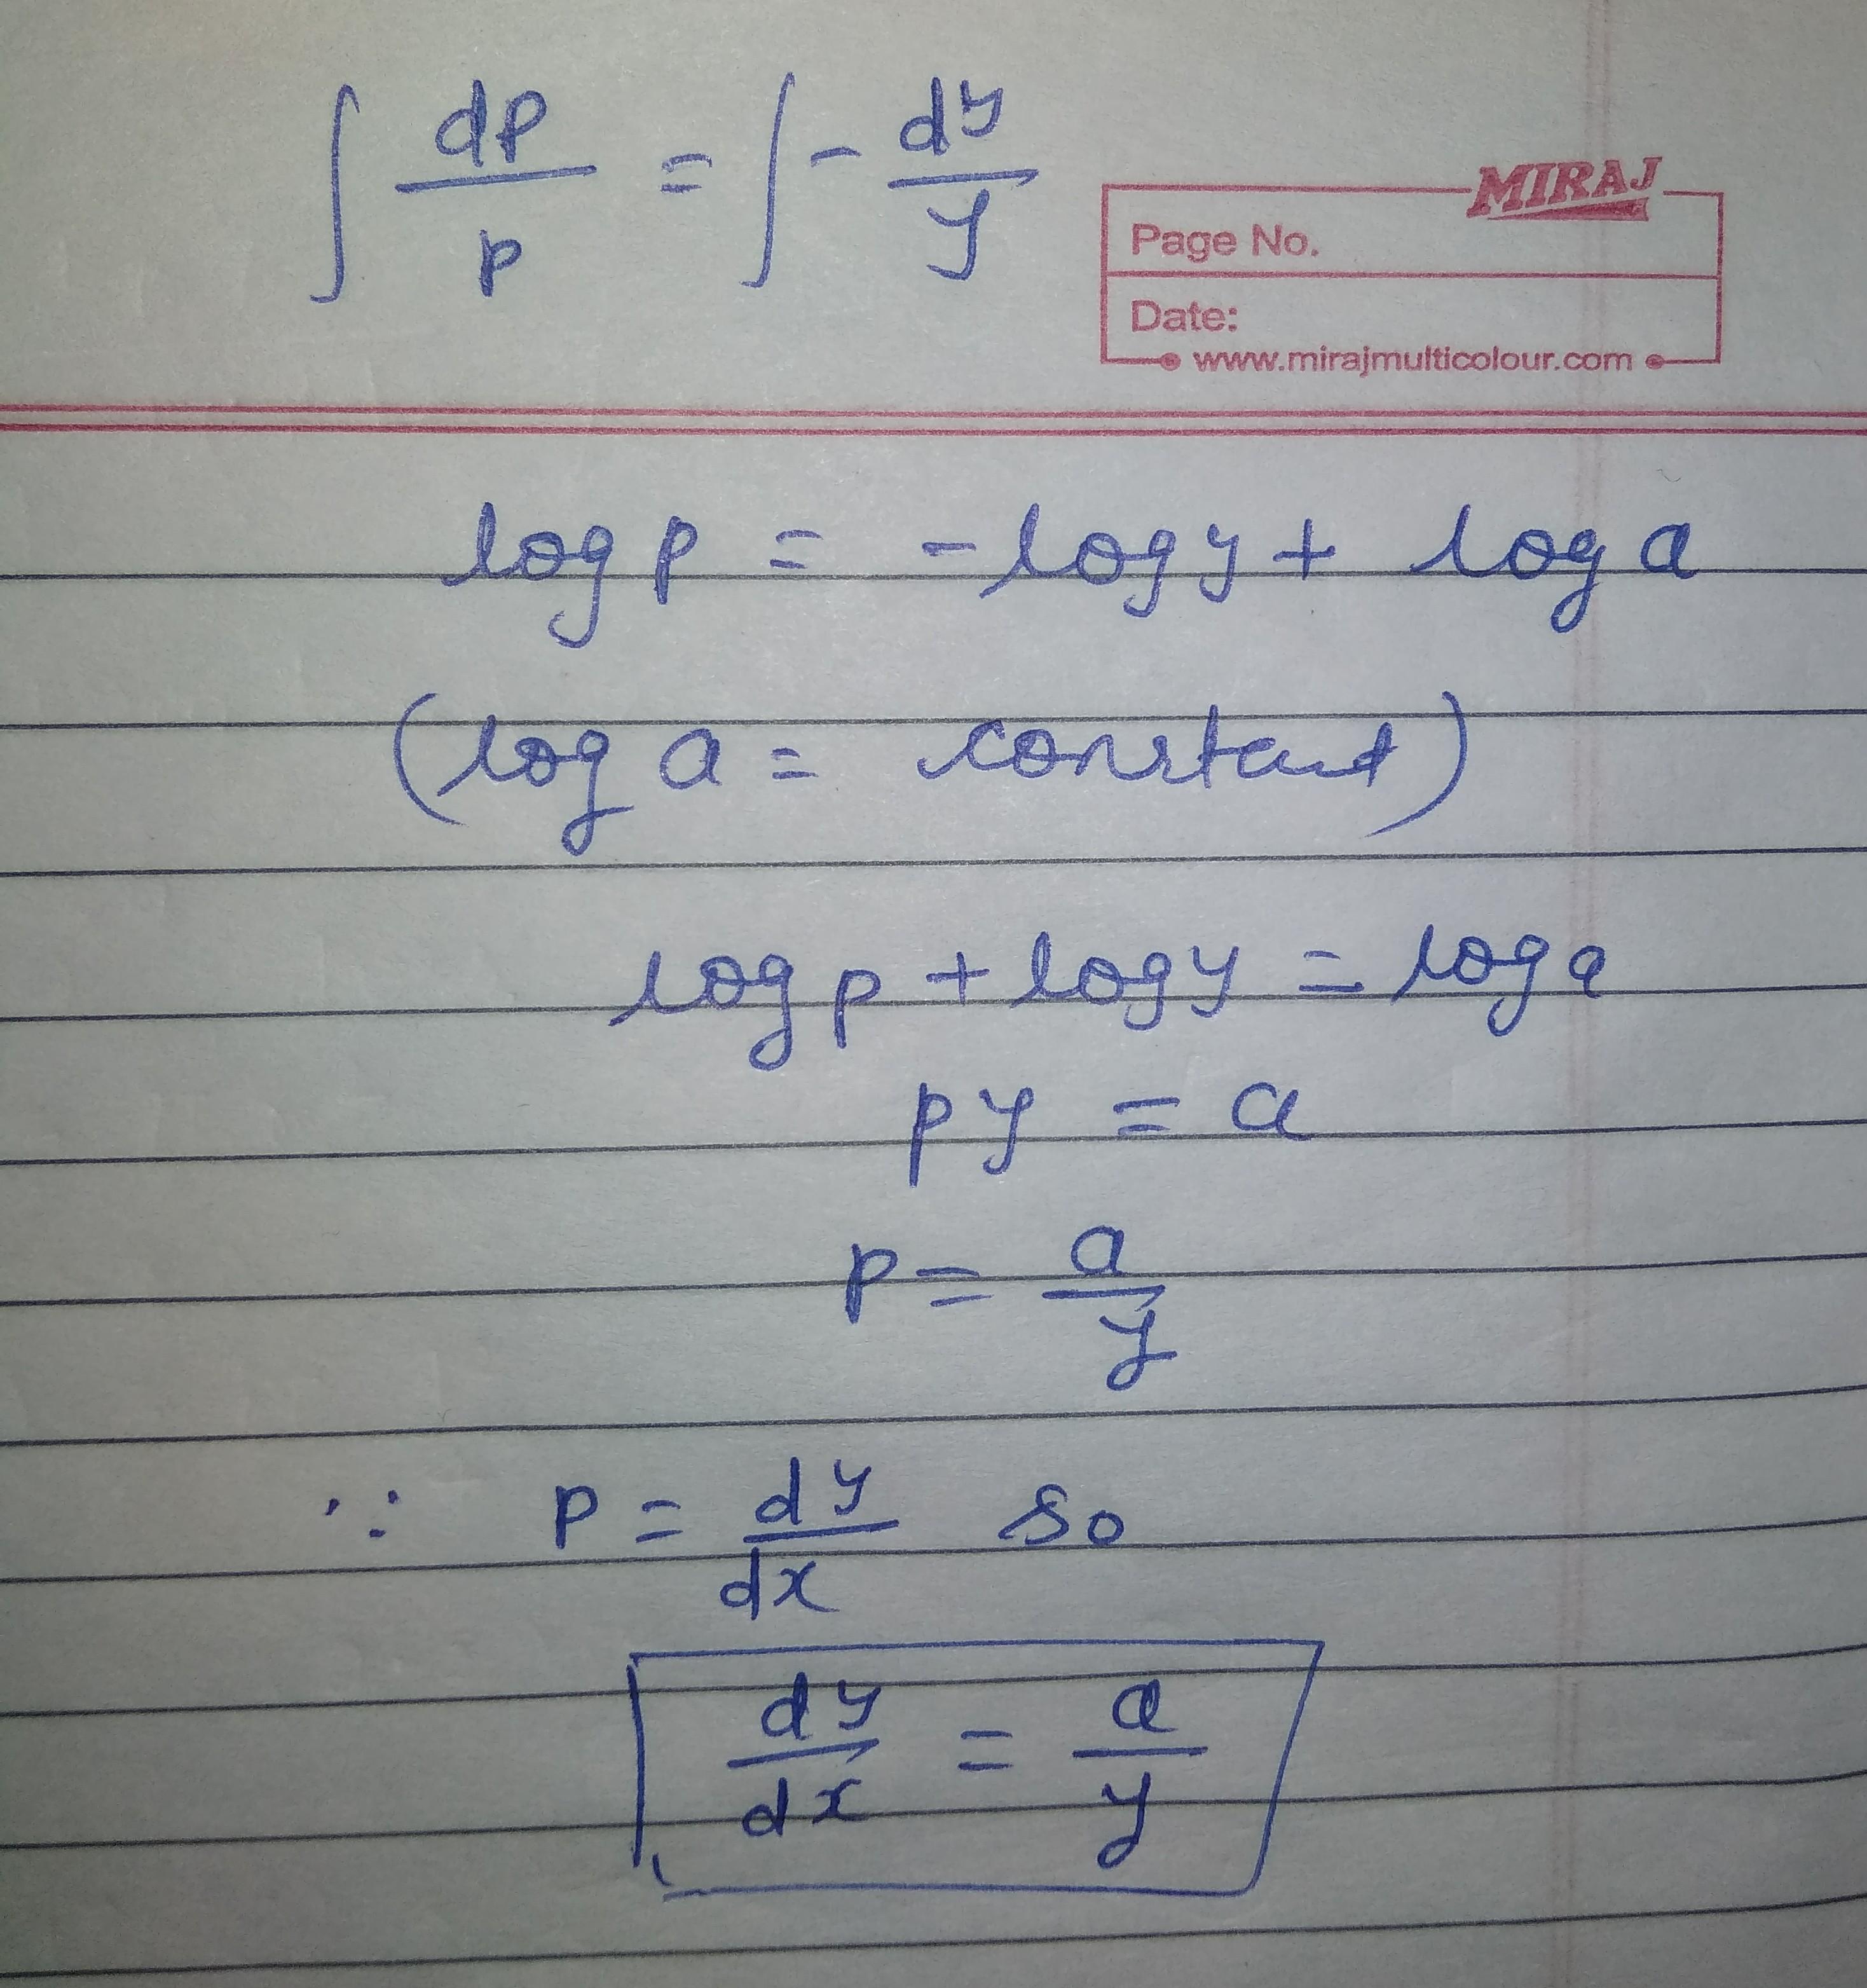 ∫ dp/p = ∫ - dy/y
MIRAJ
Page No.
Date:
www.mirajmulticolour.com
log p = - log y + log a
(log a = constant)
log p + log y = log a
py = a
p = a/y
∵ p = dy/dx so
dy/dx = a/y